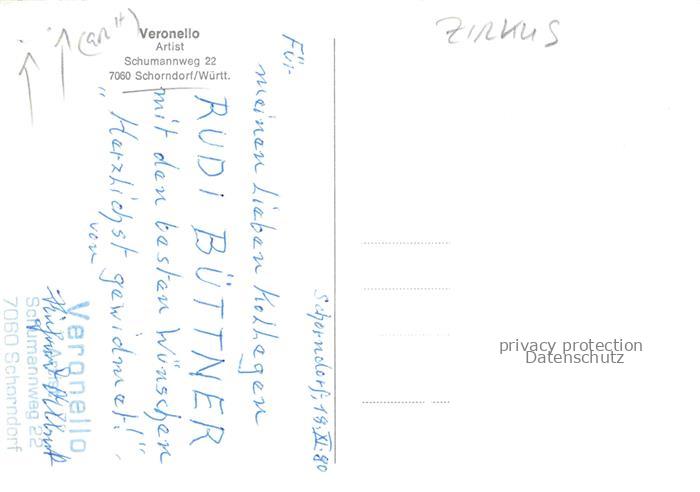 (an")
Veronello
Artist
Schumannweg 22
7060 Schorndorf/Württ.
ZIRKUS
Schorndorf, 19.XI.80
Für
meinen lieben Kollegen
RUDI BÜTTNER
mit den besten Wünschen
„Herzlichst gewidmet!"
von
Veronello
Schumannweg 22
7060 Schorndorf
privacy protection
Datenschutz